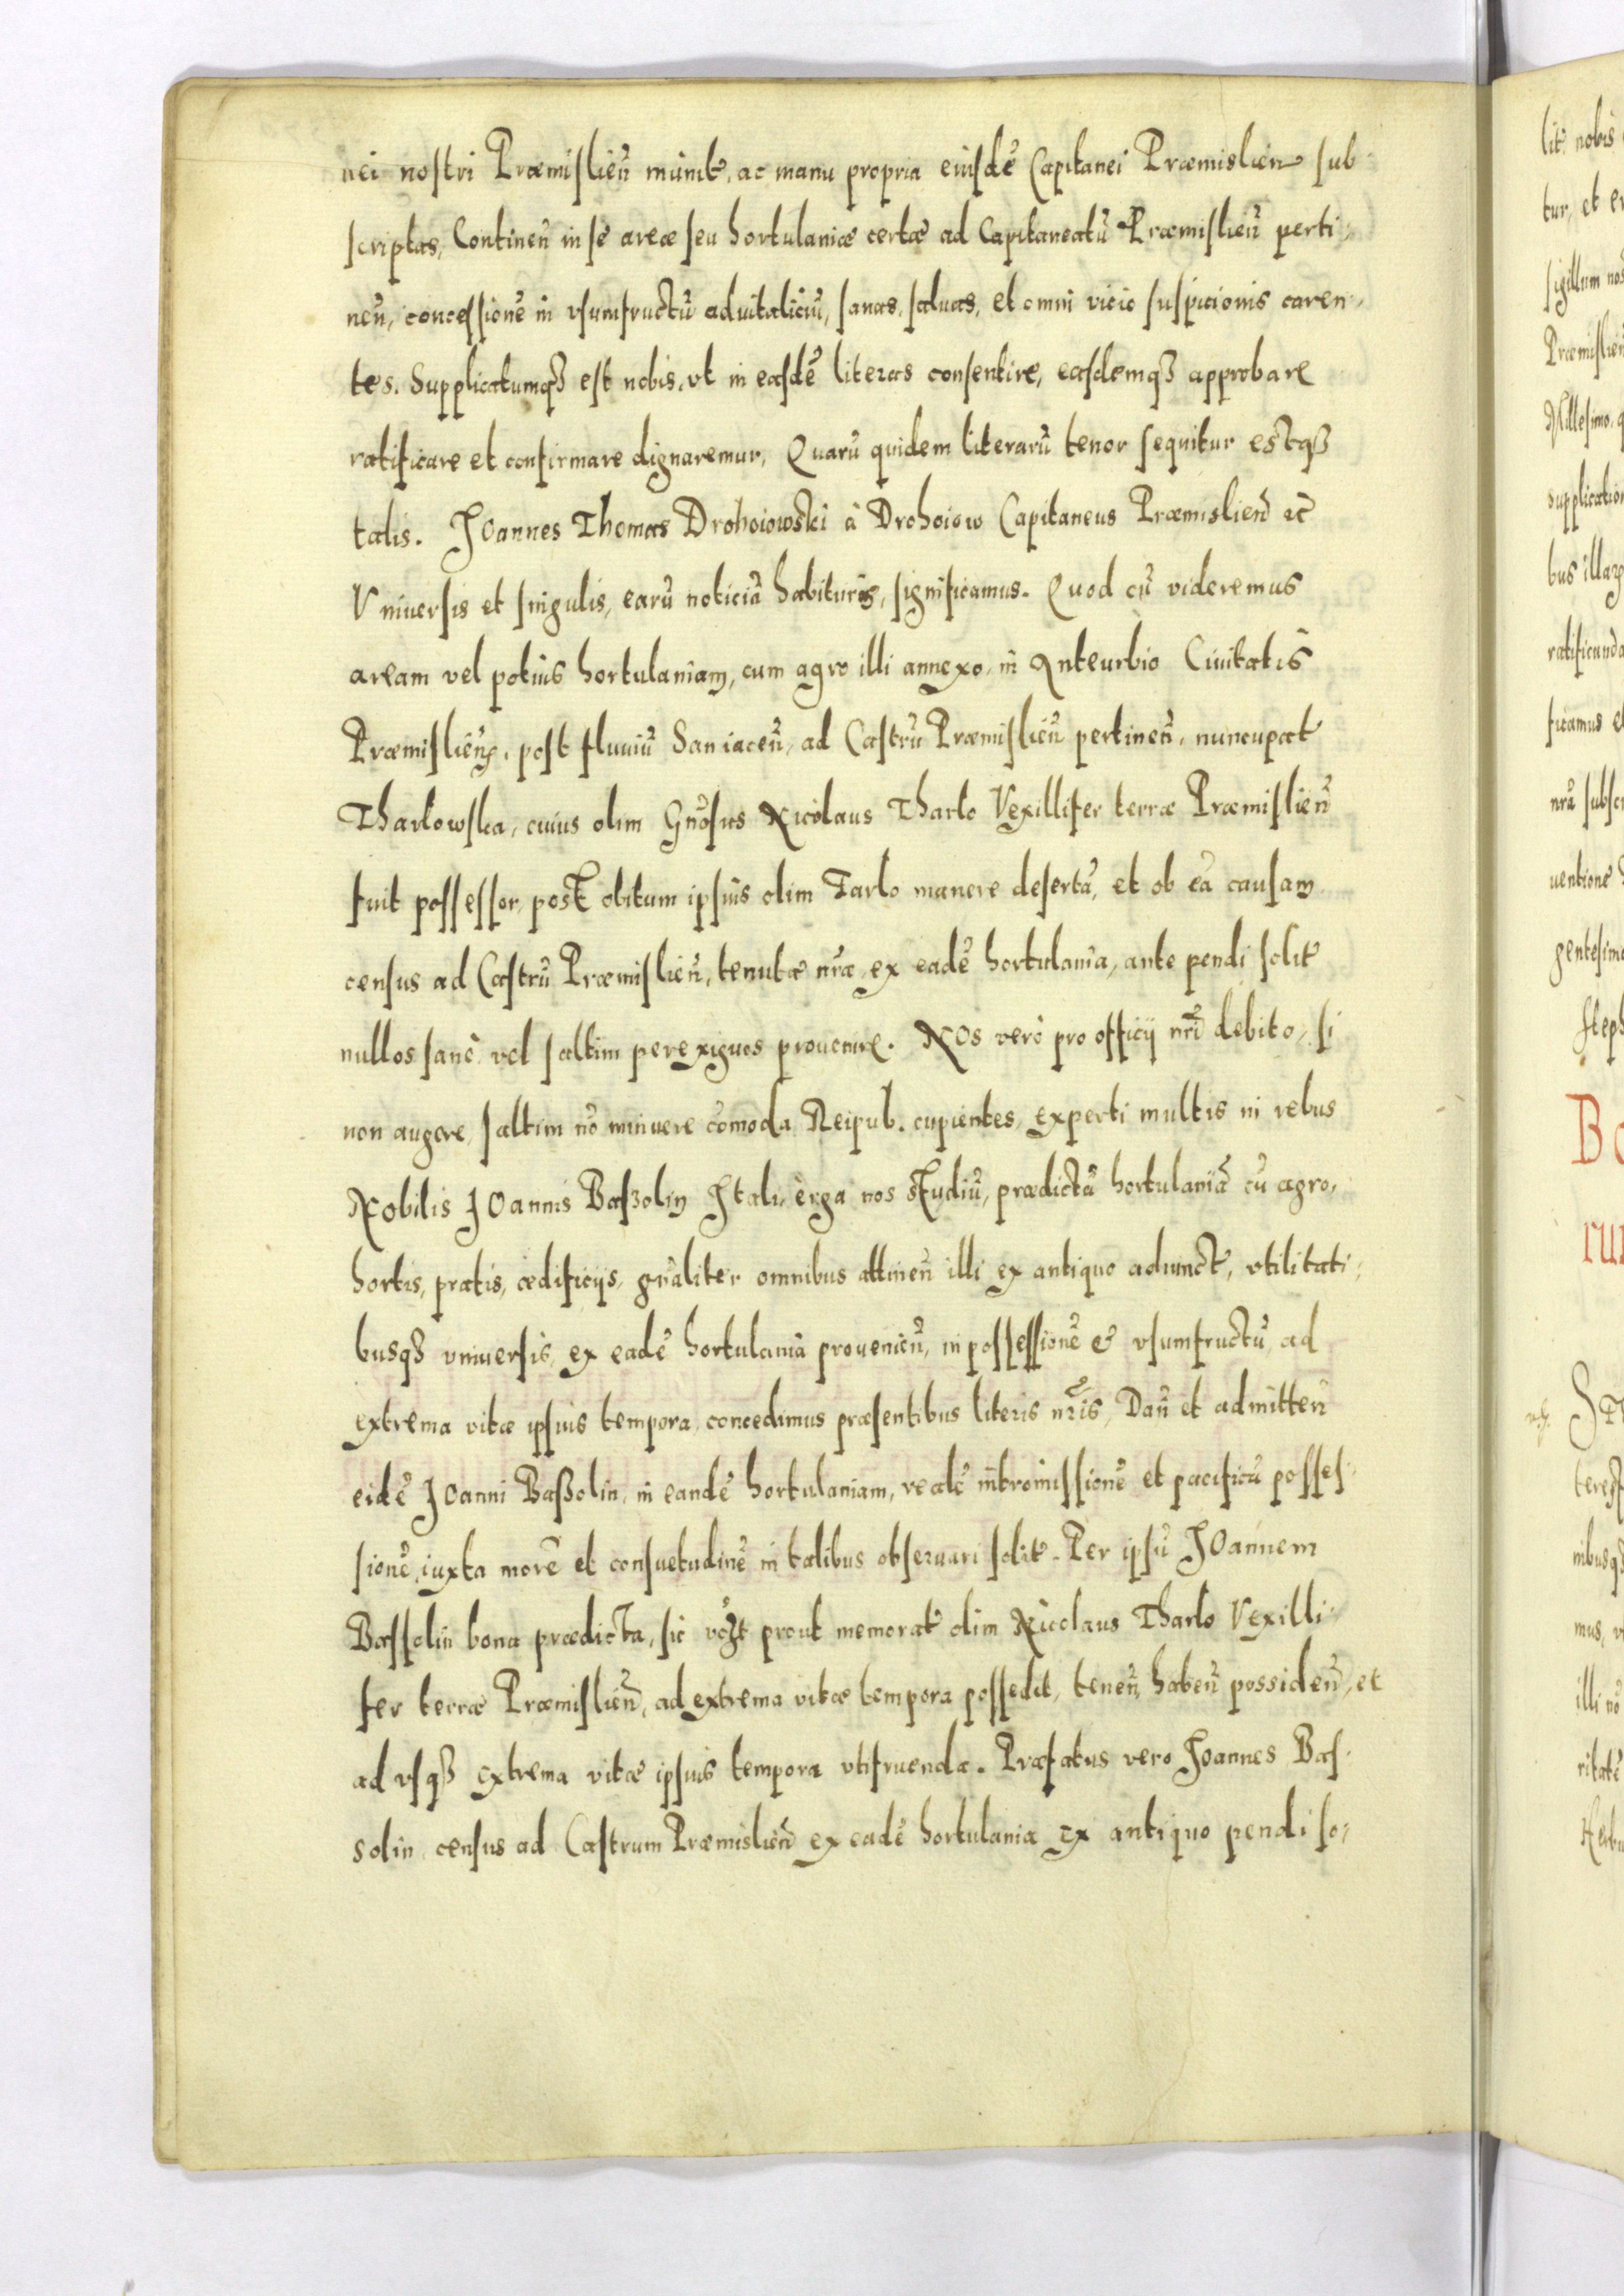 nei nostri Præmislień munit, ac manu propria eiusdē Capitanei Præmislień sub
scriptas, Contineń in se areæ seu hortulaniæ certæ ad Capitaneatū Præmislień perti
neń, concessionē in vsumfructū aduitaliciū, sanas, saluas, et omni vicio suspicionis caren
tes. Supplicatumqȝ est nobis, vt in easdē literas consentire, easdemqȝ approbare
ratificare et confirmare dignaremur, Quarū quidem literarū tenor sequitur estqȝ
talis. JOannes Thomas Drohoiowski à Drohoiow Capitaneus Præmislień zc
Vniuersis et singulis, earū noticiā habituris, significamus. Quod cū videremus
aream vel potius hortulaniam, cum agro illi annexo in Anteurbio Ciuitatis
Præmislień, post fluuiū San iaceń, ad Castrū Præmislień pertineń, nuncupat
Tharlowska, cuius olim Gńosus Nicolaus Tharlo Vexillifer terræ Præmislień
fuit possessor, post obitum ipsius olim Tarlo manere desertā, et ob eā causam
census ad Castrū Præmislień, tenutæ nræ, ex eadē hortulania, ante pendi solit
nullos sanè vel saltim perexiguos prouenire. NOs verò pro officij nri debito, si
non augere, saltim nō minuere cōmoda Reipub. cupientes, experti multis in rebus
Nobilis JOannis Baſzolin Itali, erga nos studiū, prædictā hortulaniā cū agro,
hortis, pratis, ædificijs, gńaliter omnibus attineń illi ex antiquo adiunct, vtilitati
busqȝ vniuersis, ex eadē hortulania prouenień, in possessionē et vsumfructū, ad
extrema vitæ ipsius tempora, concedimus præsentibus literis nris, Dań et admitteń
eidē JOanni Baßolin, in eandē hortulaniam, realē intromissionē et pacificā posses
sionē, iuxta morē et consuetudinē in talibus obseruari solit. Per ipsū JOannem
Bassolin bona prædicta, sic prout memorat olim Nicolaus Tharlo Vexilli
fer terræ Præmislień, ad extrema vitæ tempora possedit, teneń, habeń possideń, et
ad vsqȝ extrema vitæ ipsius tempora vtifruenda. Præfatus vero Joannes Bas
solin census ad Castrum Præmislień ex eadē hortulania ex antiquo pendi so